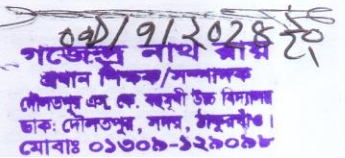 গজেন্দ্র নাথ রায়
প্রধান শিক্ষক/সম্পাদক
দৌলতপুর এস, কে, বহুমুখী উচ্চ বিদ্যালয়
ডাক: দৌলতপুর, সদর, ঠাকুরগাঁও।
মোবাঃ ০১৩০৯-১২৯০৯৮